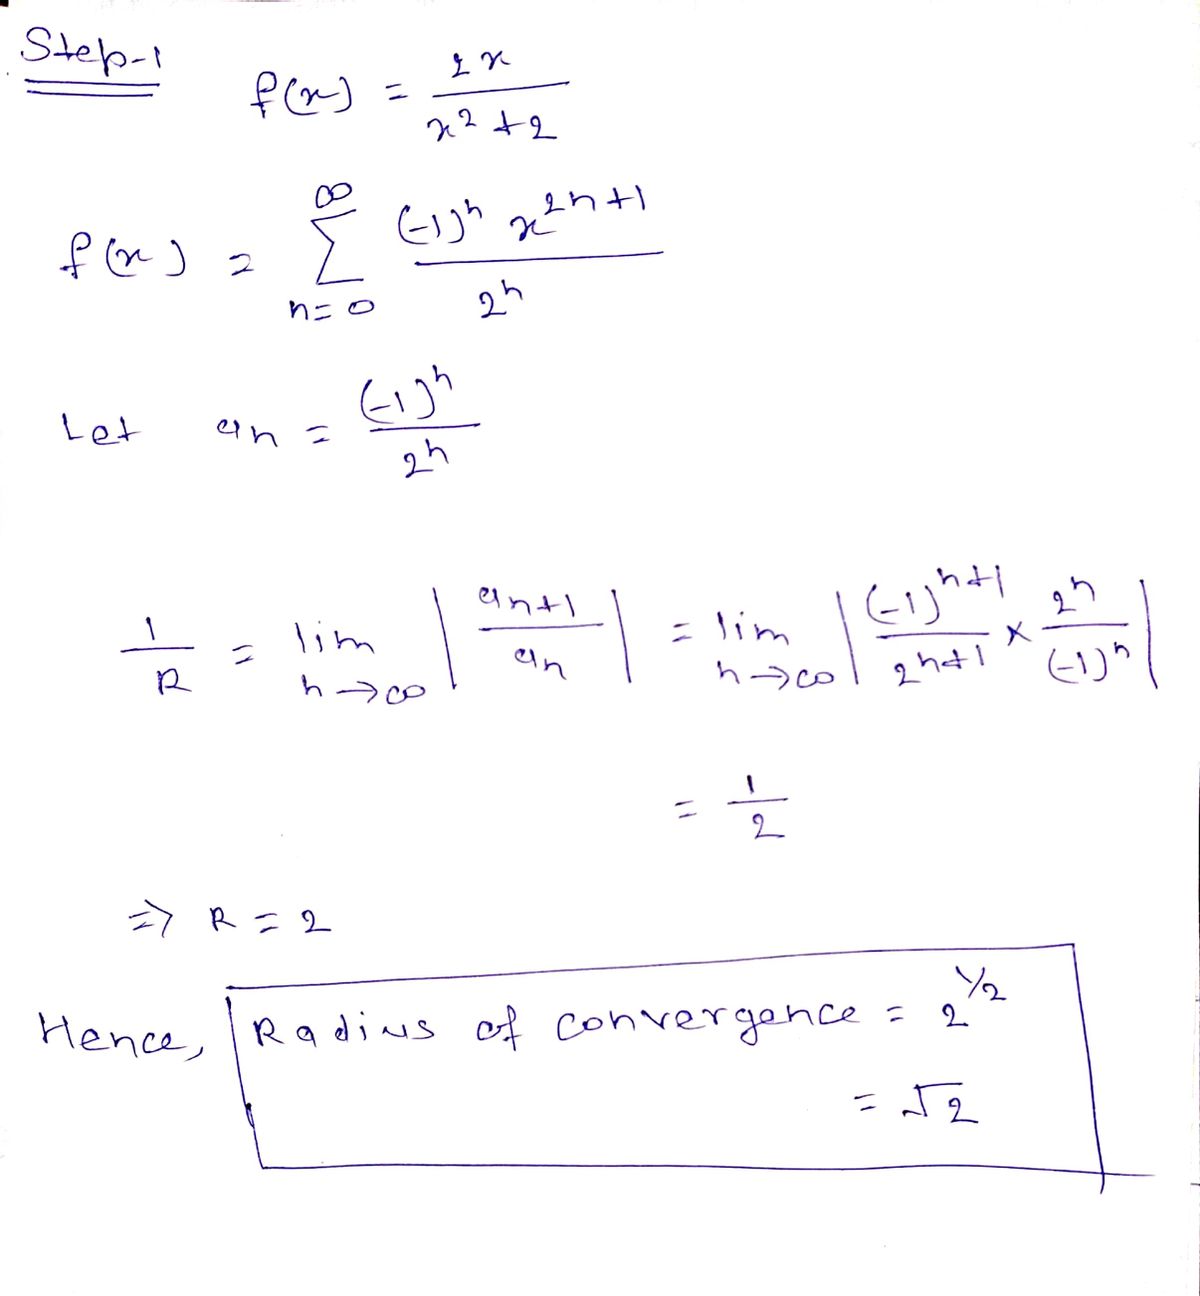 Step-1
f(x) = 2x / x² + 2
f(x) = ∑_{n=0}^{∞} (-1)ⁿ x^{2n+1} / 2ⁿ
Let an = (-1)ⁿ / 2ⁿ
1/R = lim_{n→∞} | an+1 / an | = lim_{n→∞} | (-1)^{n+1} / 2^{n+1} × 2ⁿ / (-1)ⁿ |
= 1/2
⇒ R = 2
Hence, Radius of convergence = 2^{1/2}
= √2